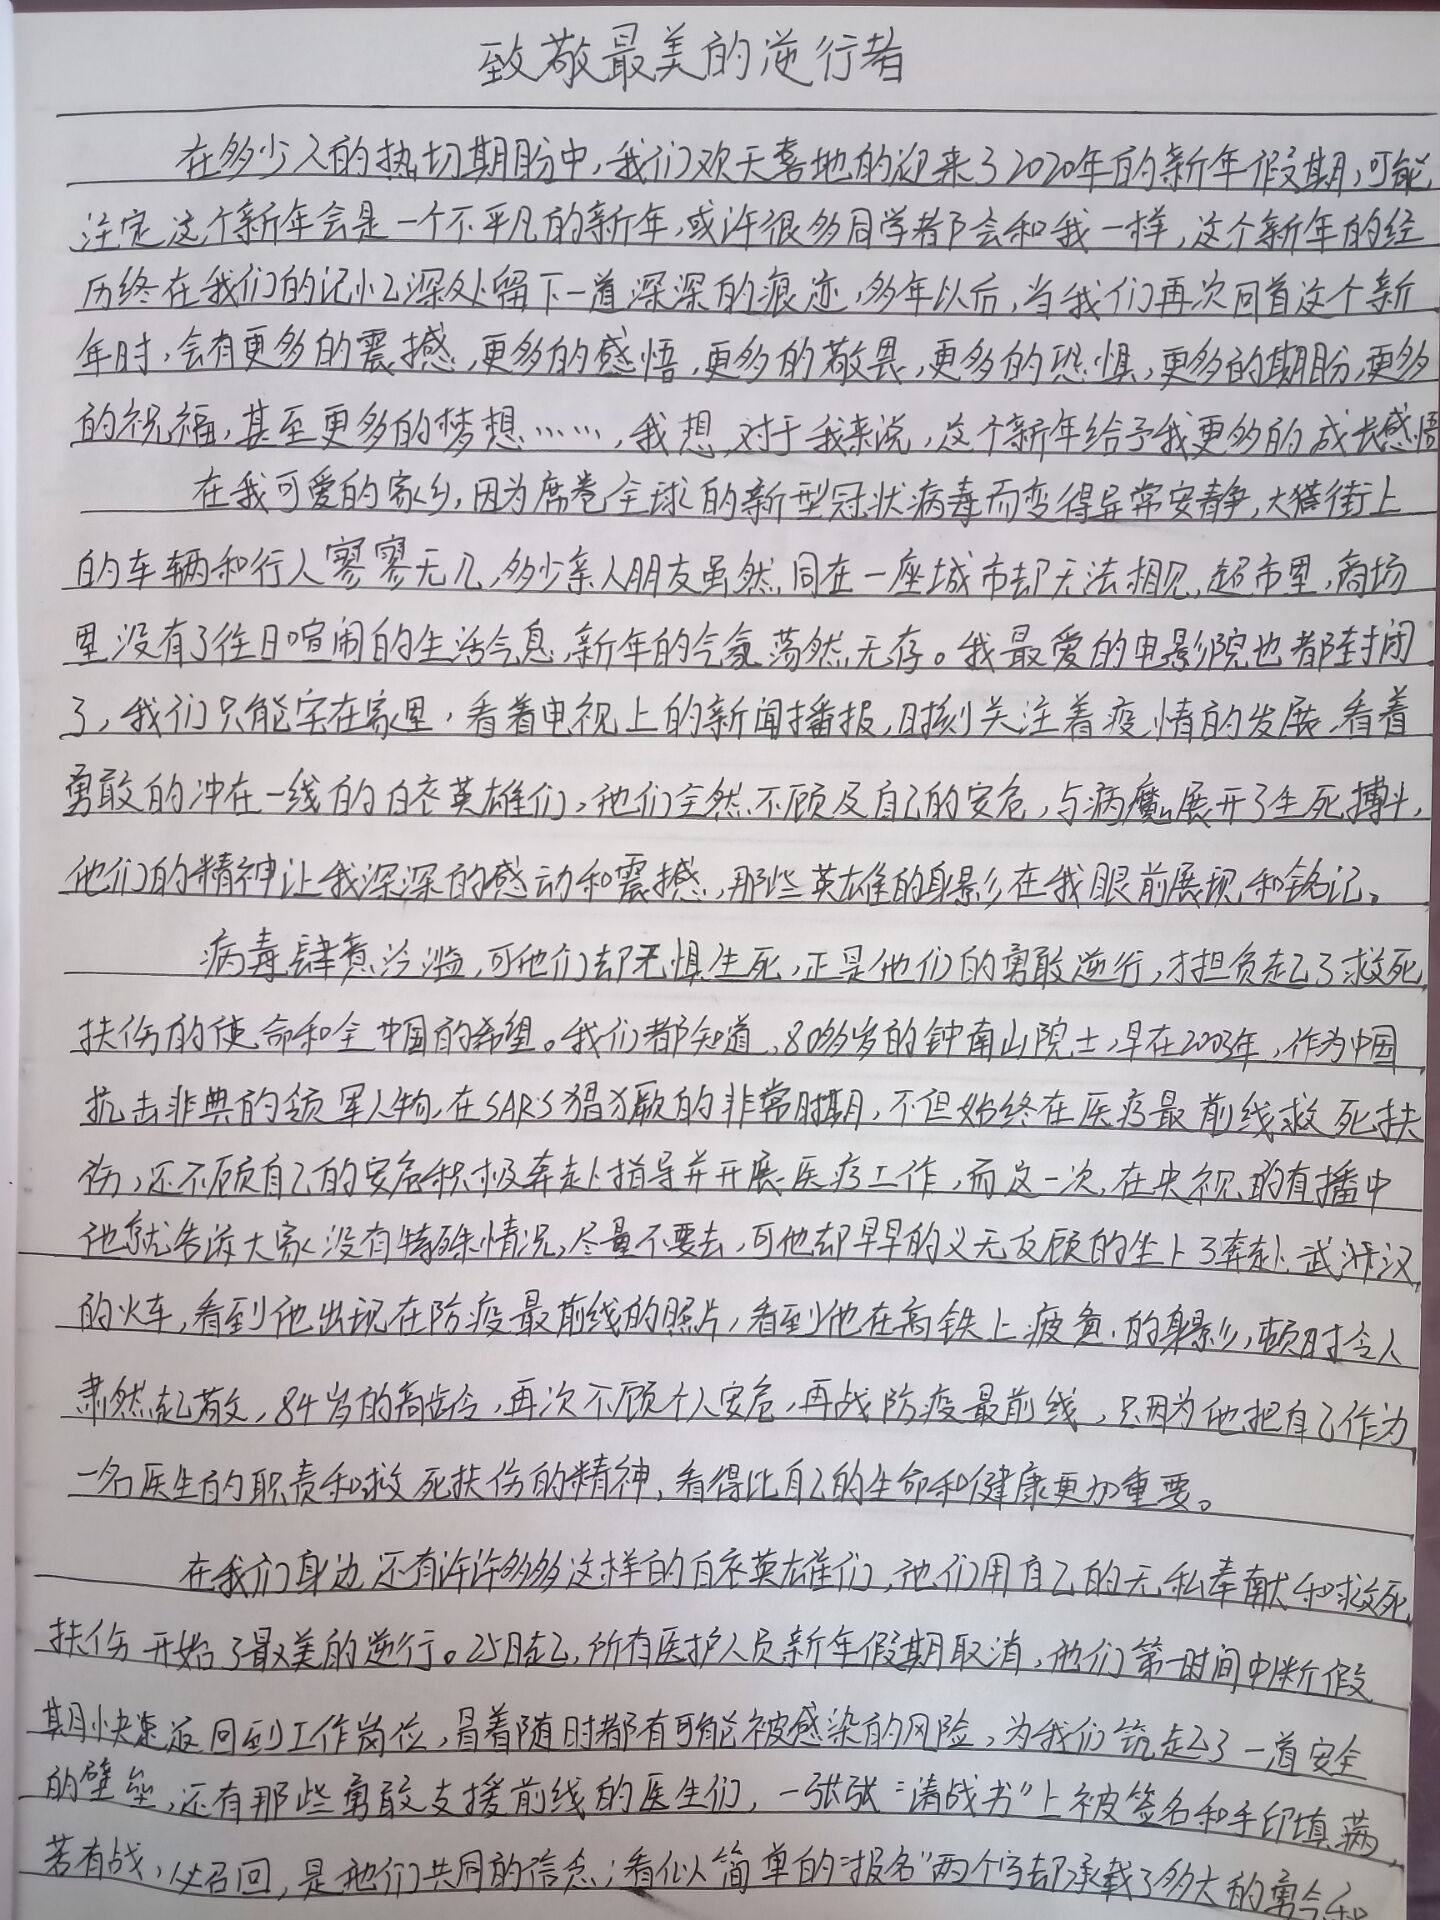 致敬最美的逆行者
在多少人的热切期盼中，我们欢天喜地的迎来了2020年的新年假期，可能
注定这个新年会是一个不平凡的新年，或许很多同学都会和我一样，这个新年的经
历终在我们的记忆深处留下一道深深的痕迹，多年以后，当我们再次回首这个新
年时，会有更多的震撼，更多的感悟，更多的敬畏，更多的恐惧，更多的期盼，更多
的祝福，甚至更多的梦想……，我想，对于我来说，这个新年给予我更多的成长感悟
在我可爱的家乡，因为席卷全球的新型冠状病毒而变得异常安静，大街上
的车辆和行人寥寥无几，多少亲人朋友虽然同在一座城市却无法相见，超市里，商场
里没有了往日喧闹的生活气息，新年的气氛荡然无存。我最爱的电影院也都封闭
了，我们只能宅在家里，看着电视上的新闻播报，时刻关注着疫情的发展，看着
勇敢的冲在一线的白衣英雄们，他们全然不顾及自己的安危，与病魔展开了生死搏斗，
他们的精神让我深深的感动和震撼，那些英雄的身影在我眼前展现和铭记。
病毒肆意泛滥，可他们却无惧生死，正是他们的勇敢逆行，才担负起了救死
扶伤的使命和全中国的希望。我们都知道，80多岁的钟南山院士，早在2003年，作为中国
抗击非典的领军人物，在SARS猖獗的非常时期，不但始终在医疗最前线救死扶
伤，还不顾自己的安危积极奔赴指导并开展医疗工作，而这一次，在央视的直播中
他就告诉大家没有特殊情况，尽量不要去，可他却早早的义无反顾的坐上了奔赴武汉
的火车，看到他出现在防疫最前线的照片，看到他在高铁上疲惫的身影，顿时令人
肃然起敬，84岁的高龄，再次不顾个人安危，再战防疫最前线，只因为他把自己作为
一名医生的职责和救死扶伤的精神，看得比自己的生命和健康更加重要。
在我们身边还有许许多多这样的白衣英雄们，他们用自己的无私奉献和救死
扶伤开始了最美的逆行。25日起，所有医护人员新年假期取消，他们第一时间中断假
期快速返回到工作岗位，冒着随时都有可能被感染的风险，为我们筑起了一道安全
的壁垒，还有那些勇敢支援前线的医生们，一张张“请战书”上被签名和手印填满，
若有战，必召回，是他们共同的信念；看似简单的“报名”两个字却承载了多大的勇气和